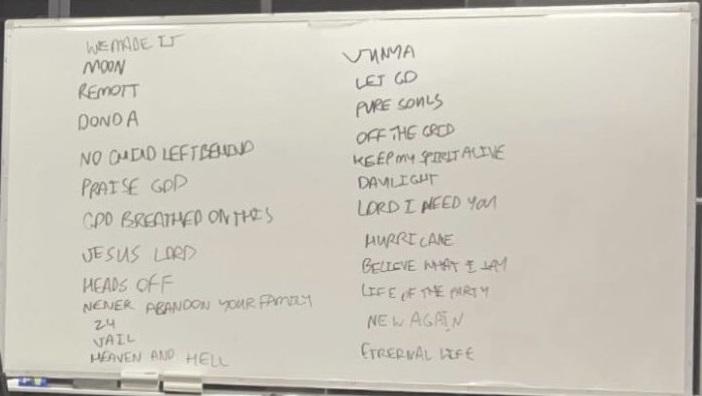 WE MADE IT
MOON
REMOTT
DONDA
NO CHILD LEFT BEHIND
PRAISE GOD
GOD BREATHED ON THIS
JESUS LORD
HEADS OFF
NENER ABANDON YOUR FAMILY
24
JAIL
HEAVEN AND HELL
JUNYA
LET GO
PURE SOULS
OFF THE GRID
KEEP MY SPIRIT ALIVE
DAYLIGHT
LORD I NEED YOU
HURRICANE
BELIEVE WHAT I SAY
LIFE OF THE PARTY
NEW AGAIN
ETRERNAL LIFE